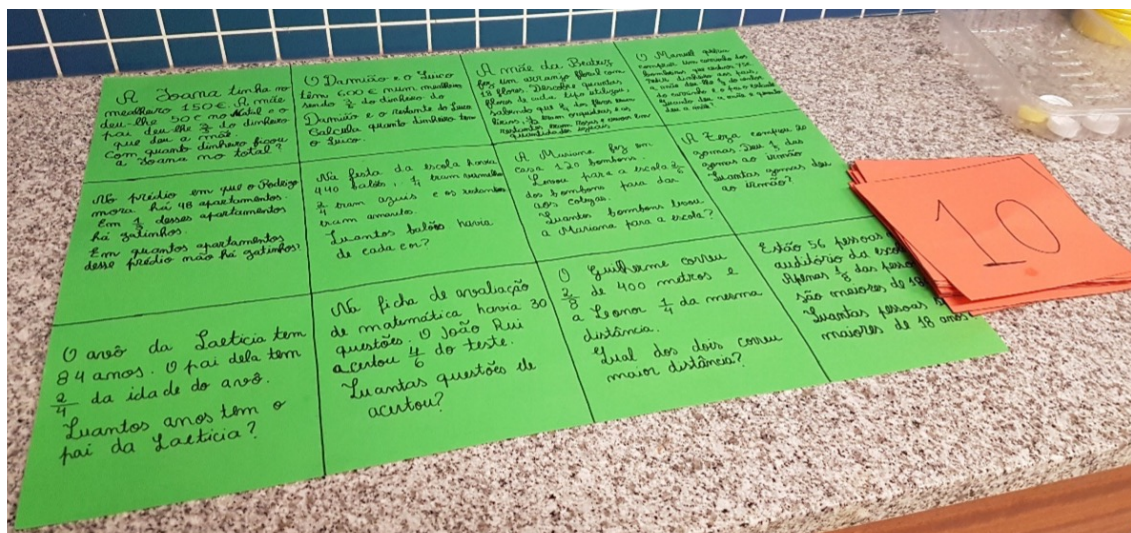 A Joana tinha no
mealheiro 150€. A mãe
deu-lhe 50€ no Natal e o
pai deu-lhe do dinheiro
que deu a mãe.
Com quanto dinheiro ficou
a Joana no total?
O Damião e o Luco
têm 600€ num mealheiro
sendo do dinheiro do
Damião e o restante do Luco
Calcula quanto dinheiro tem
o Luco.
A mãe da Beatriz
fez um arranjo floral com
18 flores. Descobre quantas
flores de cada tipo utilizou,
sabendo que das flores eram
lírios, eram orquídeas e as
restantes eram rosas
O Manuel
comprar um carrinho de
bombeiros
dinheiro aos pais.
a mãe deu-lhe do valor
do carrinho e o pai o restante
Quanto deu a mãe e quanto
deu o pai?
No prédio em que o Rodrigo
mora há 48 apartamentos.
Em desses apartamentos
há gatinhos.
Em quantos apartamentos
desse prédio não há gatinhos?
Na festa da escola havia
440 balões, 1/4 eram vermelhos
2/4 eram azuis e os restantes
eram amarelos.
Quantos balões havia
de cada cor?
A Mariana fez em
casa 120 bombons.
Levou para a escola 2/6
dos bombons para dar
aos colegas.
Quantos bombons levou
a Mariana para a escola?
A Zeza comprou 20
gomas. Deu das
gomas ao irmão
Quantas gomas deu
ao irmão?
O avô da Laeticia tem
84 anos. O pai dela tem
2/4 da idade do avô.
Quantos anos tem o
pai da Laeticia?
Na ficha de avaliação
de matemática havia 30
questões. O João Rui
acertou 4/6 do teste.
Quantas questões ele
acertou?
O Guilherme correu
2/8 de 400 metros e
a Leonor 1/4 da mesma
distância.
Qual dos dois correu
maior distância?
Estão 56 pessoas
auditório da
Apenas 1/8 das
são maiores de 18
Quantas pessoas
maiores de 18 anos
10